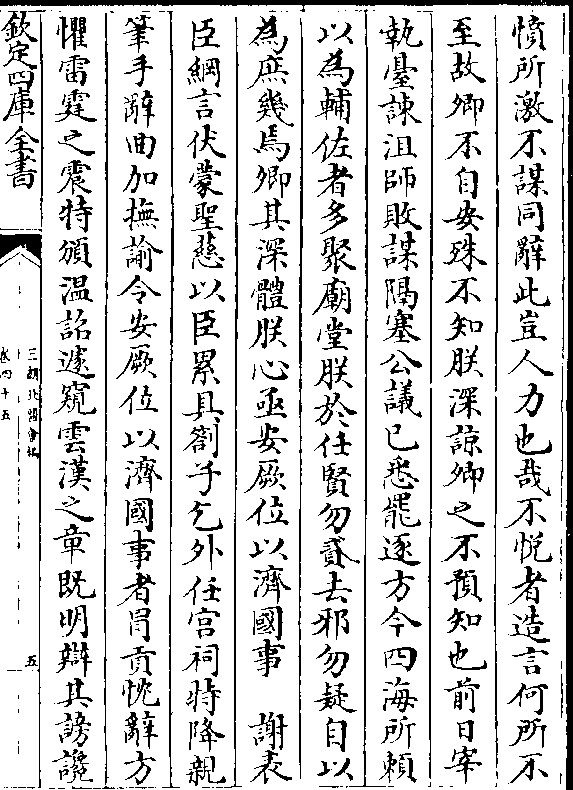 憤所激不謀同辭此豈人力也哉不悅者造言何所不
至故卿不自安殊不知朕深諒卿之不預知也前日宰
執臺諫沮師敗謀隔塞公議已悉罷逐方今四海所賴
以為輔佐者多聚廟堂朕於任賢勿貳去邪勿疑自以
為庶幾焉卿其深體朕心亟安厥位以濟國事 謝表
臣綱言伏蒙聖慈以臣累具劄子乞外任宫祠特降親
筆手辭曲加撫諭令安厥位以濟國事者冐貢忱辭方
懼雷霆之震特頒温詔遽窺雲漢之章既明辯其謗讒
欽定四庫全書
三朝北盟會編
卷四十五
五